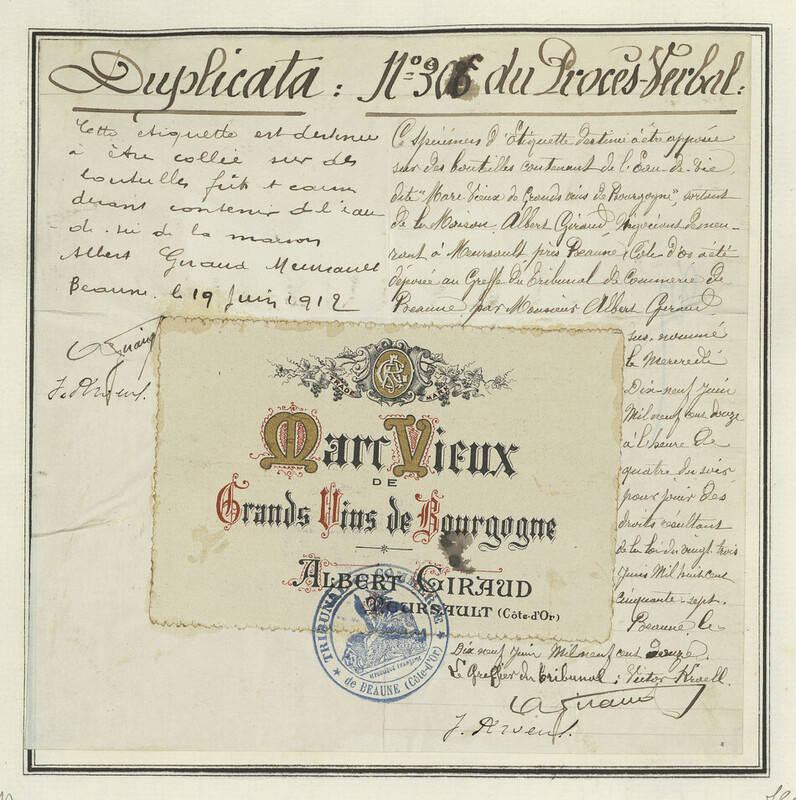 Duplicata : N° 306 du Procès-Verbal :
Cette étiquette est destinée
à être collée sur des
bouteilles fûts et caisses
devant contenir de l'eau
de vie de la maison
Albert Giraud Meursault
Beaune. le 19 Juin 1912
AGiraud
Ce Spécimen d'Etiquette destiné à être apposée
sur des bouteilles contenant de l'Eau-de-Vie,
dite "Marc Vieux de Grands vins de Bourgogne", sortant
de la Maison Albert Giraud, Négociant demeu-
rant à Meursault près Beaune (Côte d'or) a été
déposée au Greffe du Tribunal de Commerce de
Beaune par Monsieur Albert Giraud
sus-nommé
le Mercredi
Dix-neuf Juin
Mil neuf cent douze
à l'heure de
quatre du soir
pour jouir des
droits résultant
de la loi du vingt trois
Juin Mil huit cent
cinquante-sept.
Beaune le
Dix neuf Juin Mil neuf cent douze.
Le Greffier du Tribunal : Victor Kroell.
AGiraud
TRADE MARK
Marc Vieux
DE
Grands Vins de Bourgogne
ALBERT GIRAUD
MEURSAULT (Côte-d'Or)
TRIBUNAL DE COMMERCE
RÉPUBLIQUE FRANÇAISE
de BEAUNE (Côte-d'Or)